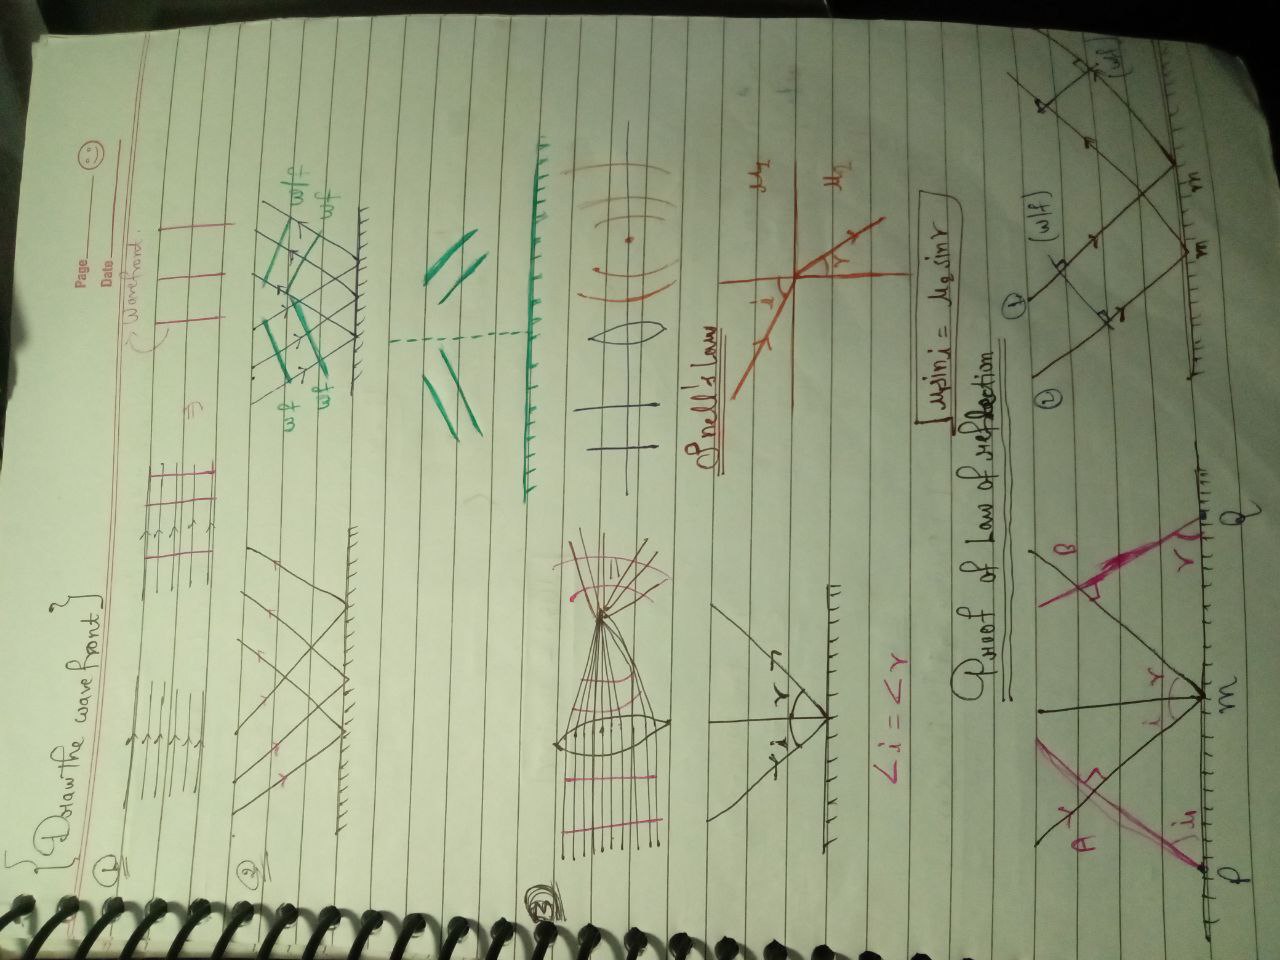 Page
Date
{Draw the wave front}
①
→ Wavefront.
②
wf
wf
wf
wf
③
Snell's Law
μ1
μ2
i
r
i
r
∠i = ∠r
μ1 sin i = μ2 sin r
Proof of Law of reflection
A
B
i
i
r
r
P
m
Q
①
②
(wf)
(wf)
m
n